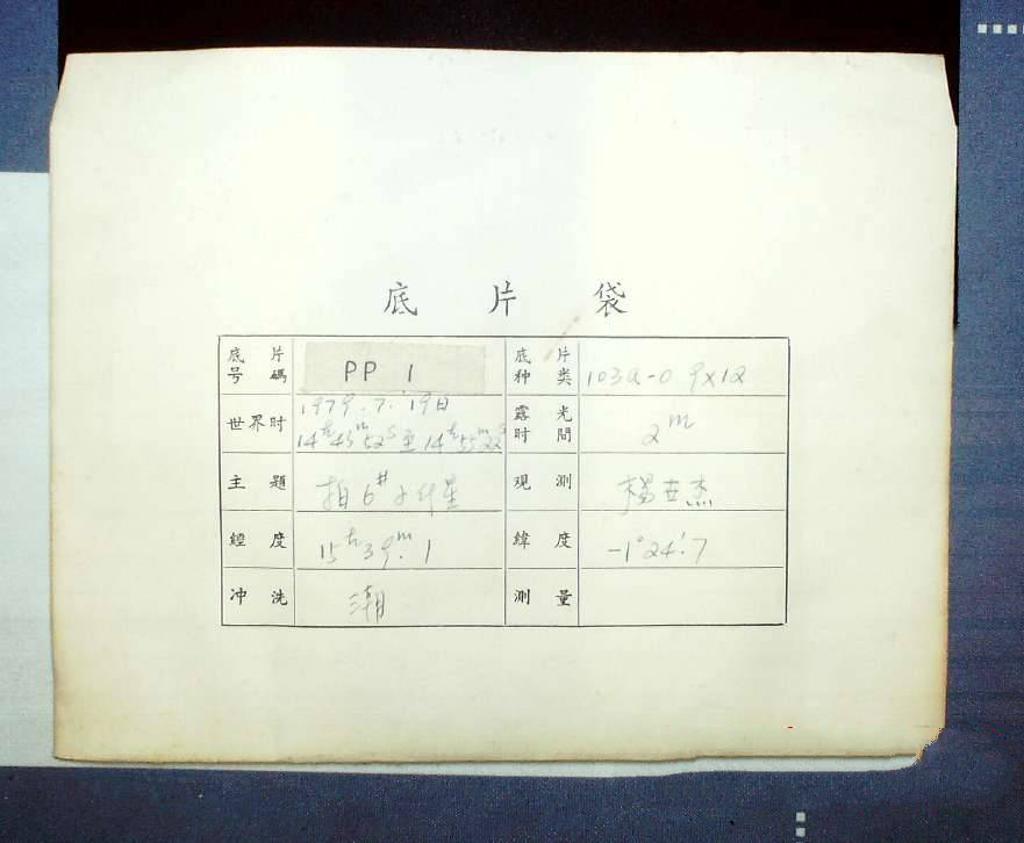 底 片 袋
底片号碼 PP 1 底片种类 103a-0 9×12
世界时 1979.7.19日 14h 45m 52s 至 14h 55m 22s 露光时間 2m
主題 拍6# 小行星 观測 楊世杰
經度 15h 39m.1 緯度 -1°24′.7
冲洗 潮 測量